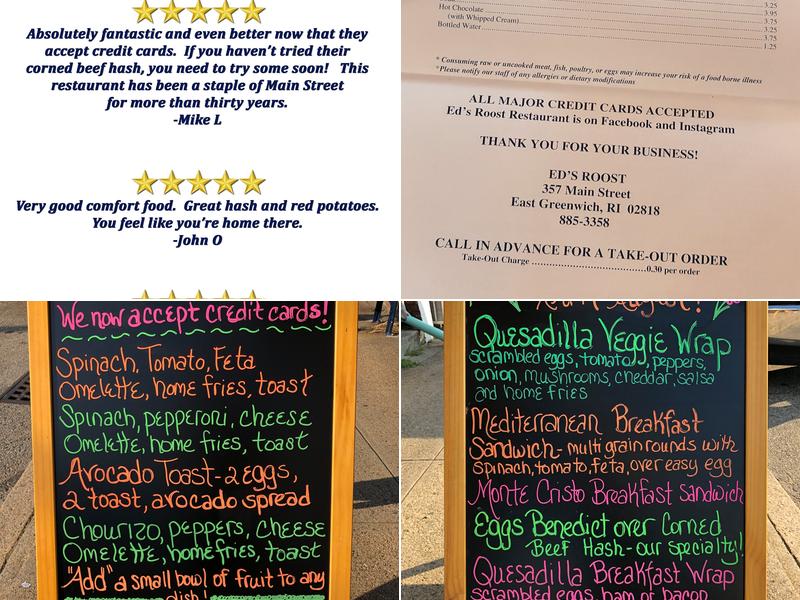 Absolutely fantastic and even better now that they
accept credit cards. If you haven't tried their
corned beef hash, you need to try some soon! This
restaurant has been a staple of Main Street
for more than thirty years.
-Mike L
Very good comfort food. Great hash and red potatoes.
You feel like you're home there.
-John O
3.25
Hot Chocolate 3.95
(with Whipped Cream) 3.75
Bottled Water 3.75
1.25
* Consuming raw or uncooked meat, fish, poultry, or eggs may increase your risk of a food borne illness
*Please notify our staff of any allergies or dietary modifications
ALL MAJOR CREDIT CARDS ACCEPTED
Ed's Roost Restaurant is on Facebook and Instagram
THANK YOU FOR YOUR BUSINESS!
ED'S ROOST
357 Main Street
East Greenwich, RI 02818
885-3358
CALL IN ADVANCE FOR A TAKE-OUT ORDER
Take-Out Charge ........................................0.30 per order
We now accept credit cards!
Spinach, Tomato, Feta
Omelette, home fries, toast
Spinach, pepperoni, cheese
Omelette, home fries, toast
Avocado Toast-2 eggs,
2 toast, avocado spread
Chourizo, peppers, cheese
Omelette, home fries, toast
"Add" a small bowl of fruit to any
dish!
Quesadilla Veggie Wrap
scrambled eggs, tomato, peppers,
onion, mushrooms, cheddar, salsa
and home fries
Mediterranean Breakfast
Sandwich- multi grain rounds with
spinach, tomato, feta, over easy egg
Monte Cristo Breakfast Sandwich
Eggs Benedict over Corned
Beef Hash-our specialty!
Quesadilla Breakfast Wrap
scrambled eggs, ham or bacon